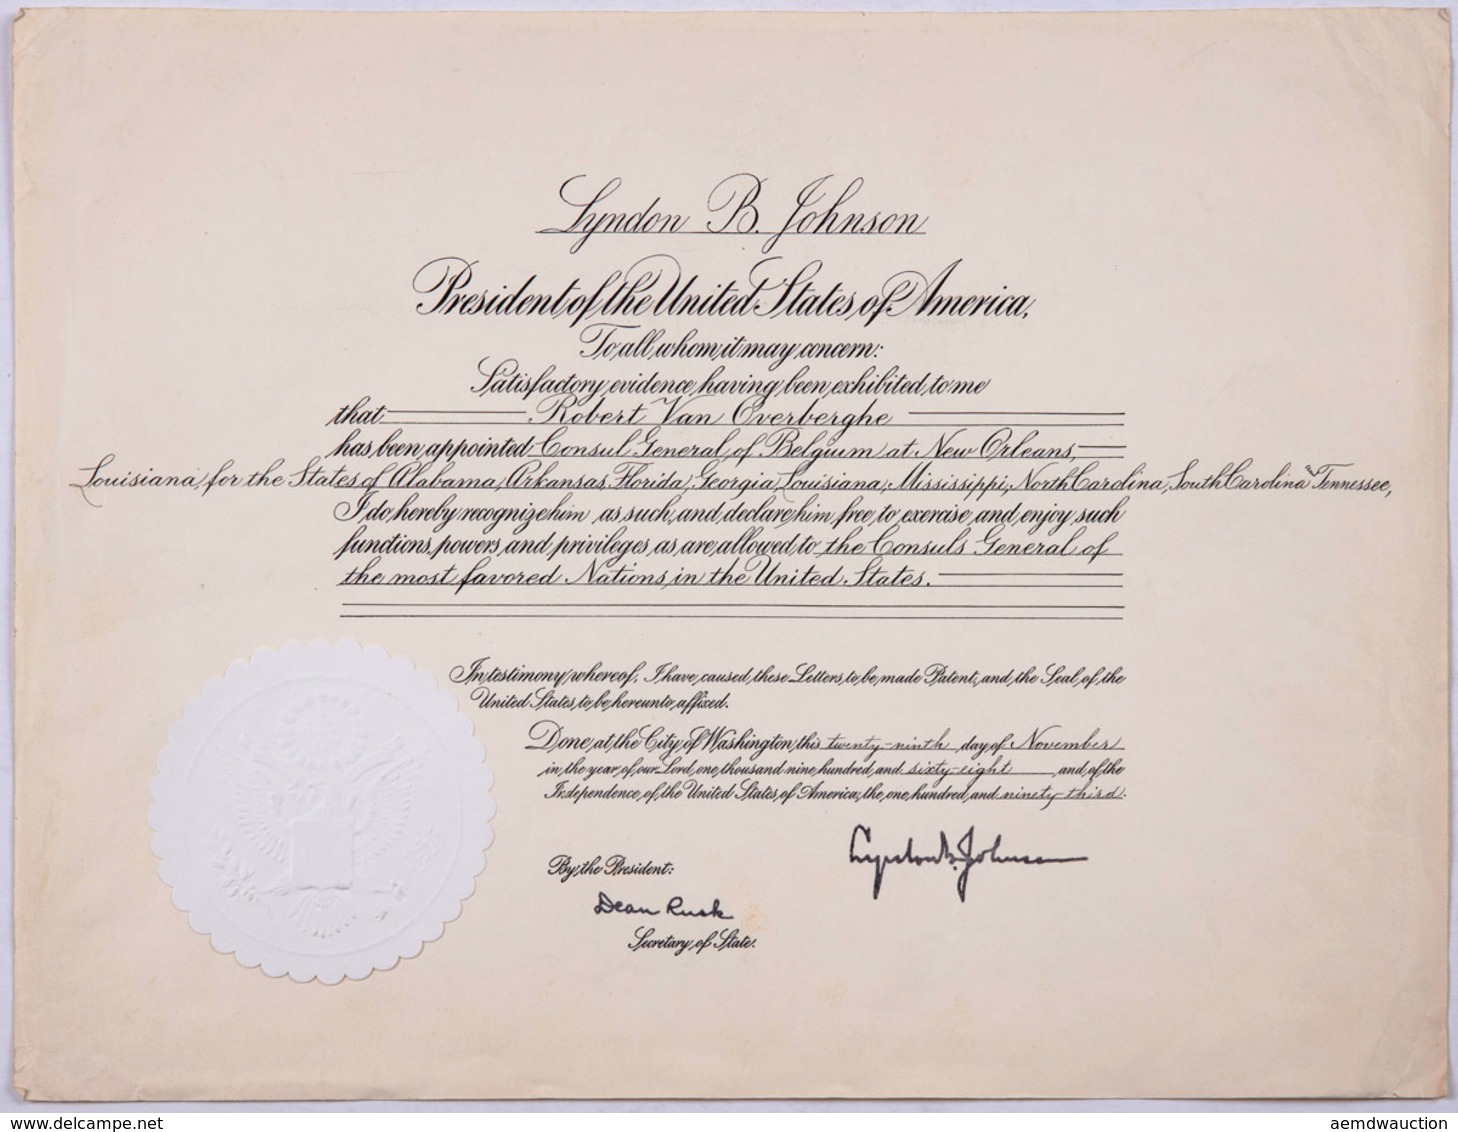 Lyndon B. Johnson
President of the United States of America,
To all whom it may concern:
Satisfactory evidence having been exhibited to me
that Robert Van Overberghe
has been appointed Consul General of Belgium at New Orleans,
Louisiana, for the States of Alabama, Arkansas, Florida, Georgia, Louisiana, Mississippi, North Carolina, South Carolina and Tennessee,
I do hereby recognize him as such, and declare him free to exercise and enjoy such
functions, powers, and privileges, as are allowed to the Consuls General of
the most favored Nations in the United States.
In testimony whereof, I have caused these Letters to be made Patent, and the Seal of the
United States, to be hereunto affixed.
Done at the City of Washington, this twenty-ninth day of November
in the year of our Lord one thousand nine hundred and sixty-eight and of the
Independence of the United States of America, the one hundred and ninety-third.
Lyndon B. Johnson
By the President:
Dean Rusk
Secretary of State.
delcampe.net
aemdwauction